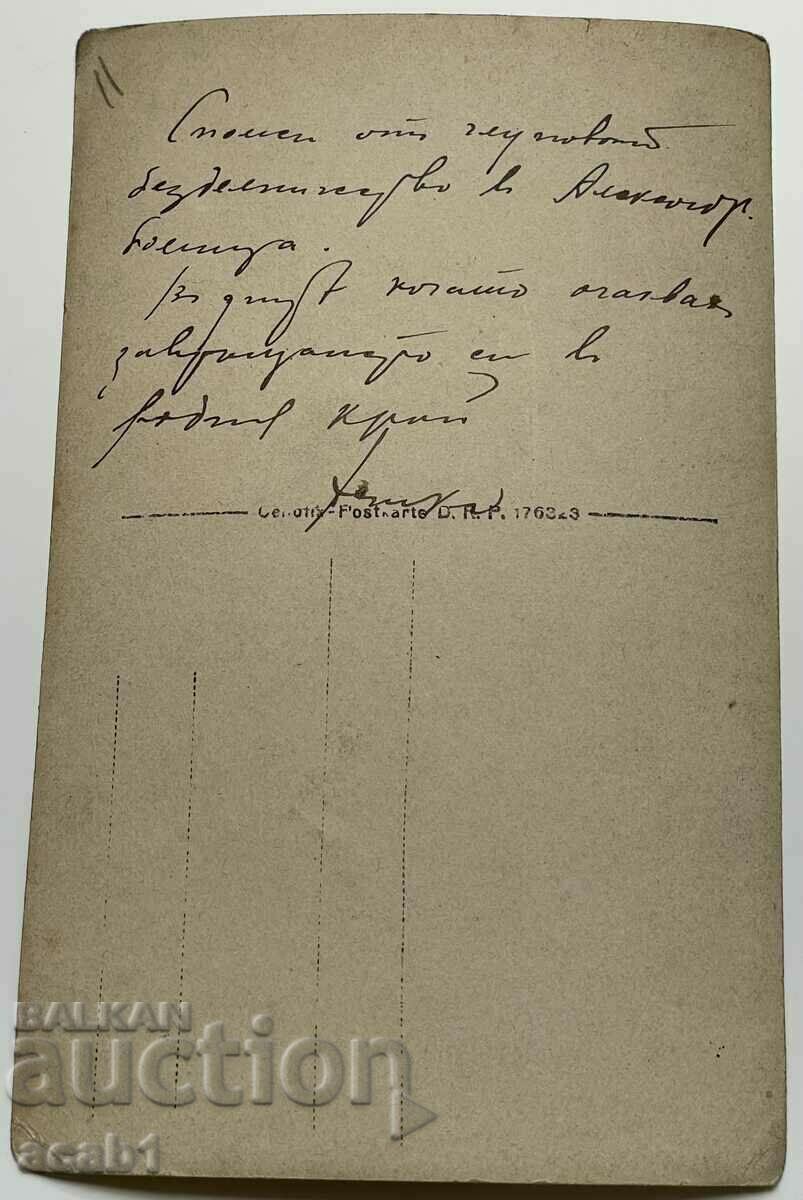 11
Спомен от глуповат
безделничество в Александр.
болница.
В дните когато очаквах
завръщането си в
родния край
Cellofix-Postkarte D. R. P. 176323
BALKAN
auction
acab1